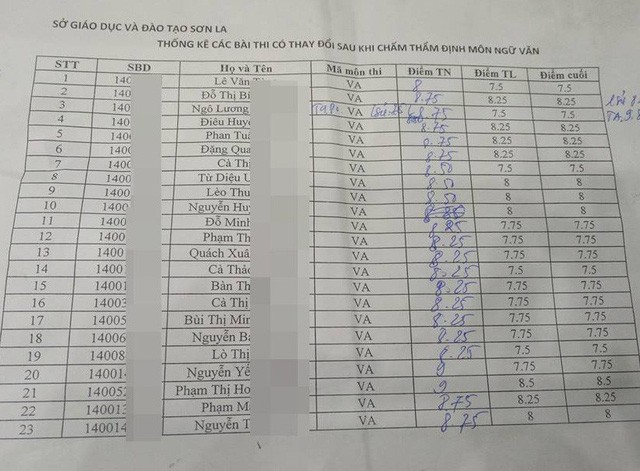 SỞ GIÁO DỤC VÀ ĐÀO TẠO SƠN LA
THỐNG KÊ CÁC BÀI THI CÓ THAY ĐỔI SAU KHI CHẤM THẨM ĐỊNH MÔN NGỮ VĂN
STT SBD Họ và Tên Mã môn thi Điểm TN Điểm TL Điểm cuối
1 140 Lê Văn VA 8 7.5 7.5
2 140 Đỗ Thị Bí VA 8.75 8.25 8.25
3 140 Ngô Lương VA 8.75 7.5 7.5
4 140 Điêu Huyề VA 8.75 8.25 8.25
5 1400 Phan Tuấ VA 8.75 8.25 8.25
6 1400 Đặng Qua VA 8.75 8.25 8.25
7 1400 Cà Th VA 8.50 7.5 7.5
8 1400 Từ Diệu VA 8.50 8 8
9 1400 Lèo Thu VA 8.50 8 8
10 1400 Nguyễn Huy VA 8 8
11 1400 Đỗ Minh VA 8.25 7.75 7.75
12 1400 Phạm Th VA 8.25 7.75 7.75
13 1400 Quách Xuâ VA 8.25 7.75 7.75
14 1400 Cà Thảo VA 8.25 7.5 7.5
15 14001 Bàn Th VA 8.25 7.75 7.75
16 14003 Cà Thị VA 8.25 7.75 7.75
17 14005 Bùi Thị Min VA 8.25 7.75 7.75
18 14006 Nguyễn Bá VA 8.25 7.75 7.75
19 14008 Lò Thị VA 8.25 7.5 7.5
20 14001 Nguyễn Yế VA 9 7.75 7.75
21 140052 Phạm Thị Ho VA 9 8.5 8.5
22 140013 Phạm M VA 8.75 8.25 8.25
23 140014 Nguyễn T VA 8.75 8 8